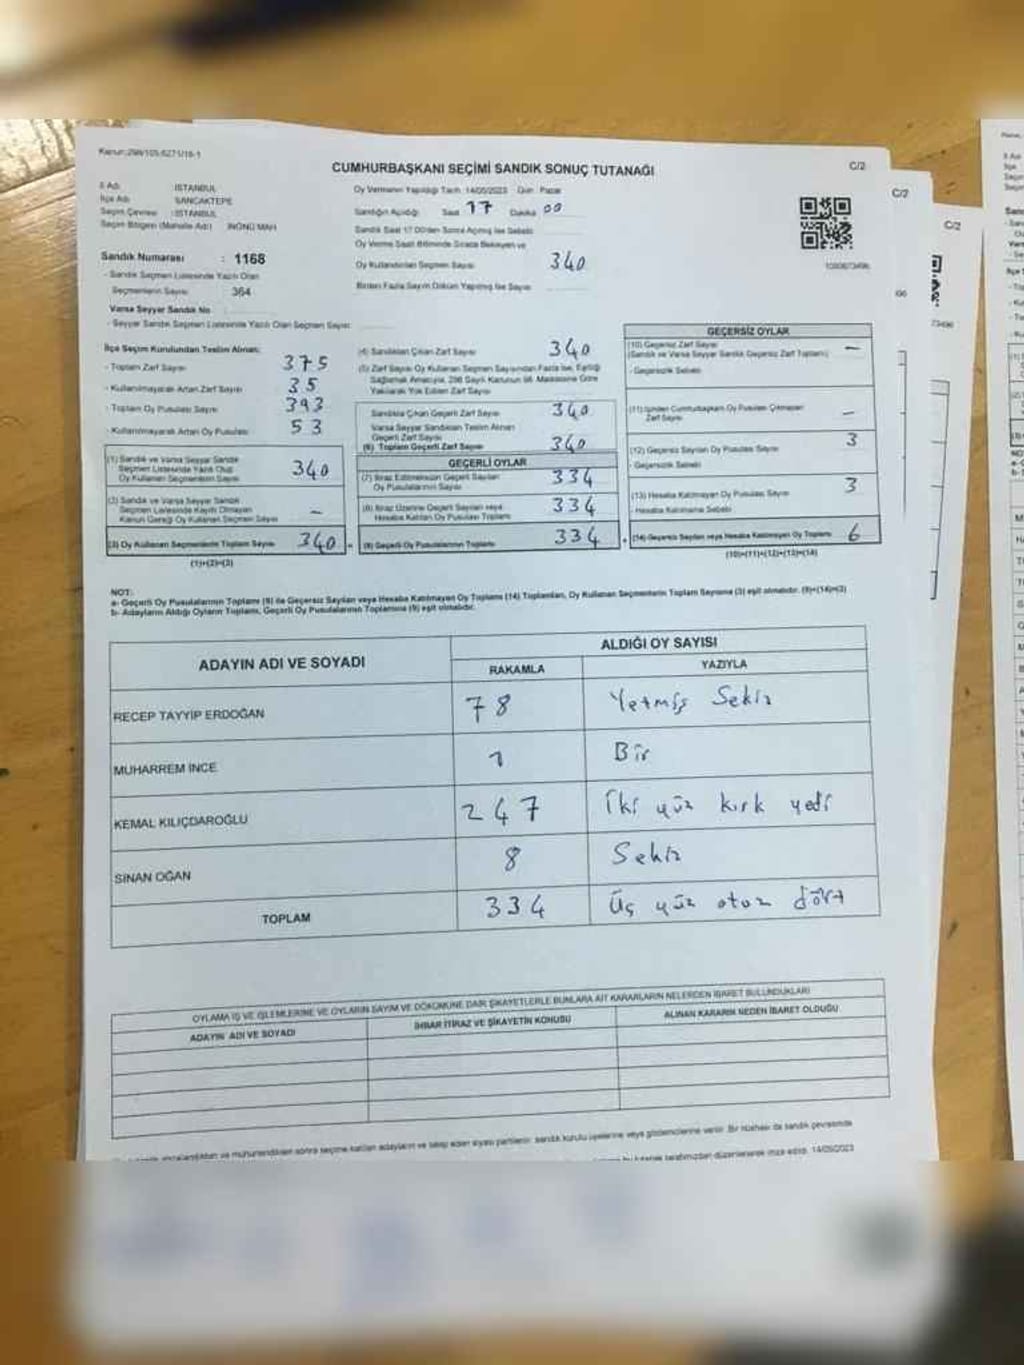 CUMHURBAŞKANI SEÇİMİ SANDIK SONUÇ TUTANAĞI
C/2
C/2
C/2
İl Adı : İSTANBUL
İlçe Adı : SANCAKTEPE
Seçim Çevresi : İSTANBUL
Seçim Bölgesi (Mahalle Adı) : İNÖNÜ MAH
Sandık Numarası : 1168
- Sandık Seçmen Listesinde Yazılı Olan
Seçmenlerin Sayısı : 364
Varsa Seyyar Sandık No
- Seyyar Sandık Seçmen Listesinde Yazılı Olan Seçmen Sayısı
Oy Vermenin Yapıldığı Tarih : 14/05/2023 Gün : Pazar
Sandığın Açıldığı Saat 17 Dakika 00
Sandık Saat 17.00'den Sonra Açılmış İse Sebebi
Oy Verme Saati Bitiminde Sırada Bekleyen ve
Oy Kullandırılan Seçmen Sayısı 340
Birden Fazla Sayım Döküm Yapılmış İse Sayısı
İlçe Seçim Kurulundan Teslim Alınan:
- Toplam Zarf Sayısı 375
- Kullanılmayarak Artan Zarf Sayısı 35
- Toplam Oy Pusulası Sayısı 393
- Kullanılmayarak Artan Oy Pusulası 53
(1) Sandık ve Varsa Seyyar Sandık
Seçmen Listesinde Yazılı Olup
Oy Kullanan Seçmenlerin Sayısı 340
(2) Sandık ve Varsa Seyyar Sandık
Seçmen Listesinde Kayıtlı Olmayan
Kanun Gereği Oy Kullanan Seçmen Sayısı –
(3) Oy Kullanan Seçmenlerin Toplam Sayısı 340
(1)+(2)=(3)
(4) Sandıktan Çıkan Zarf Sayısı 340
(5) Zarf Sayısı Oy Kullanan Seçmen Sayısından Fazla İse, Eşitliği
Sağlamak Amacıyla, 298 Sayılı Kanunun 98. Maddesine Göre
Yakılarak Yok Edilen Zarf Sayısı
Sandıkta Çıkan Geçerli Zarf Sayısı 340
Varsa Seyyar Sandıktan Teslim Alınan
Geçerli Zarf Sayısı
(6) Toplam Geçerli Zarf Sayısı 340
GEÇERLİ OYLAR
(7) İtiraz Edilmeksizin Geçerli Sayılan
Oy Pusulalarının Sayısı 334
(8) İtiraz Üzerine Geçerli Sayılan veya
Hesaba Katılan Oy Pusulası Toplamı 334
(9) Geçerli Oy Pusulalarının Toplamı 334
GEÇERSİZ OYLAR
(10) Geçersiz Zarf Sayısı –
(Sandık ve Varsa Seyyar Sandık Geçersiz Zarf Toplamı)
- Geçersizlik Sebebi
(11) İçinden Cumhurbaşkanı Oy Pusulası Çıkmayan
Zarf Sayısı –
(12) Geçersiz Sayılan Oy Pusulası Sayısı 3
- Geçersizlik Sebebi
(13) Hesaba Katılmayan Oy Pusulası Sayısı 3
- Hesaba Katılmama Sebebi
(14) Geçersiz Sayılan veya Hesaba Katılmayan Oy Toplamı 6
(10)+(11)+(12)+(13)=(14)
NOT:
a- Geçerli Oy Pusulalarının Toplamı (9) ile Geçersiz Sayılan veya Hesaba Katılmayan Oy Toplamı (14) Toplamları, Oy Kullanan Seçmenlerin Toplam Sayısına (3) eşit olmalıdır. (9)+(14)=(3)
b- Adayların Aldığı Oyların Toplamı, Geçerli Oy Pusulalarının Toplamına (9) eşit olmalıdır.
ADAYIN ADI VE SOYADI
ALDIĞI OY SAYISI
RAKAMLA YAZIYLA
RECEP TAYYİP ERDOĞAN 78 Yetmiş Sekiz
MUHARREM İNCE 1 Bir
KEMAL KILIÇDAROĞLU 247 İki yüz kırk yedi
SİNAN OĞAN 8 Sekiz
TOPLAM 334 Üç yüz otuz dört
OYLAMA İŞ VE İŞLEMLERİNE VE OYLARIN SAYIM VE DÖKÜMÜNE DAİR ŞİKAYETLERLE BUNLARA AİT KARARLARIN NELERDEN İBARET BULUNDUKLARI
ADAYIN ADI VE SOYADI İHBAR İTİRAZ VE ŞİKAYETİN KONUSU ALINAN KARARIN NEDEN İBARET OLDUĞU
sonra seçime katılan adayların ve talep eden siyasi partilerin sandık kurulu üyelerine veya gözlemcilerine verilir. Bir nüshası da sandık çevresinde
tutanak tarafımızdan düzenlenerek imza edildi. 14/05/2023